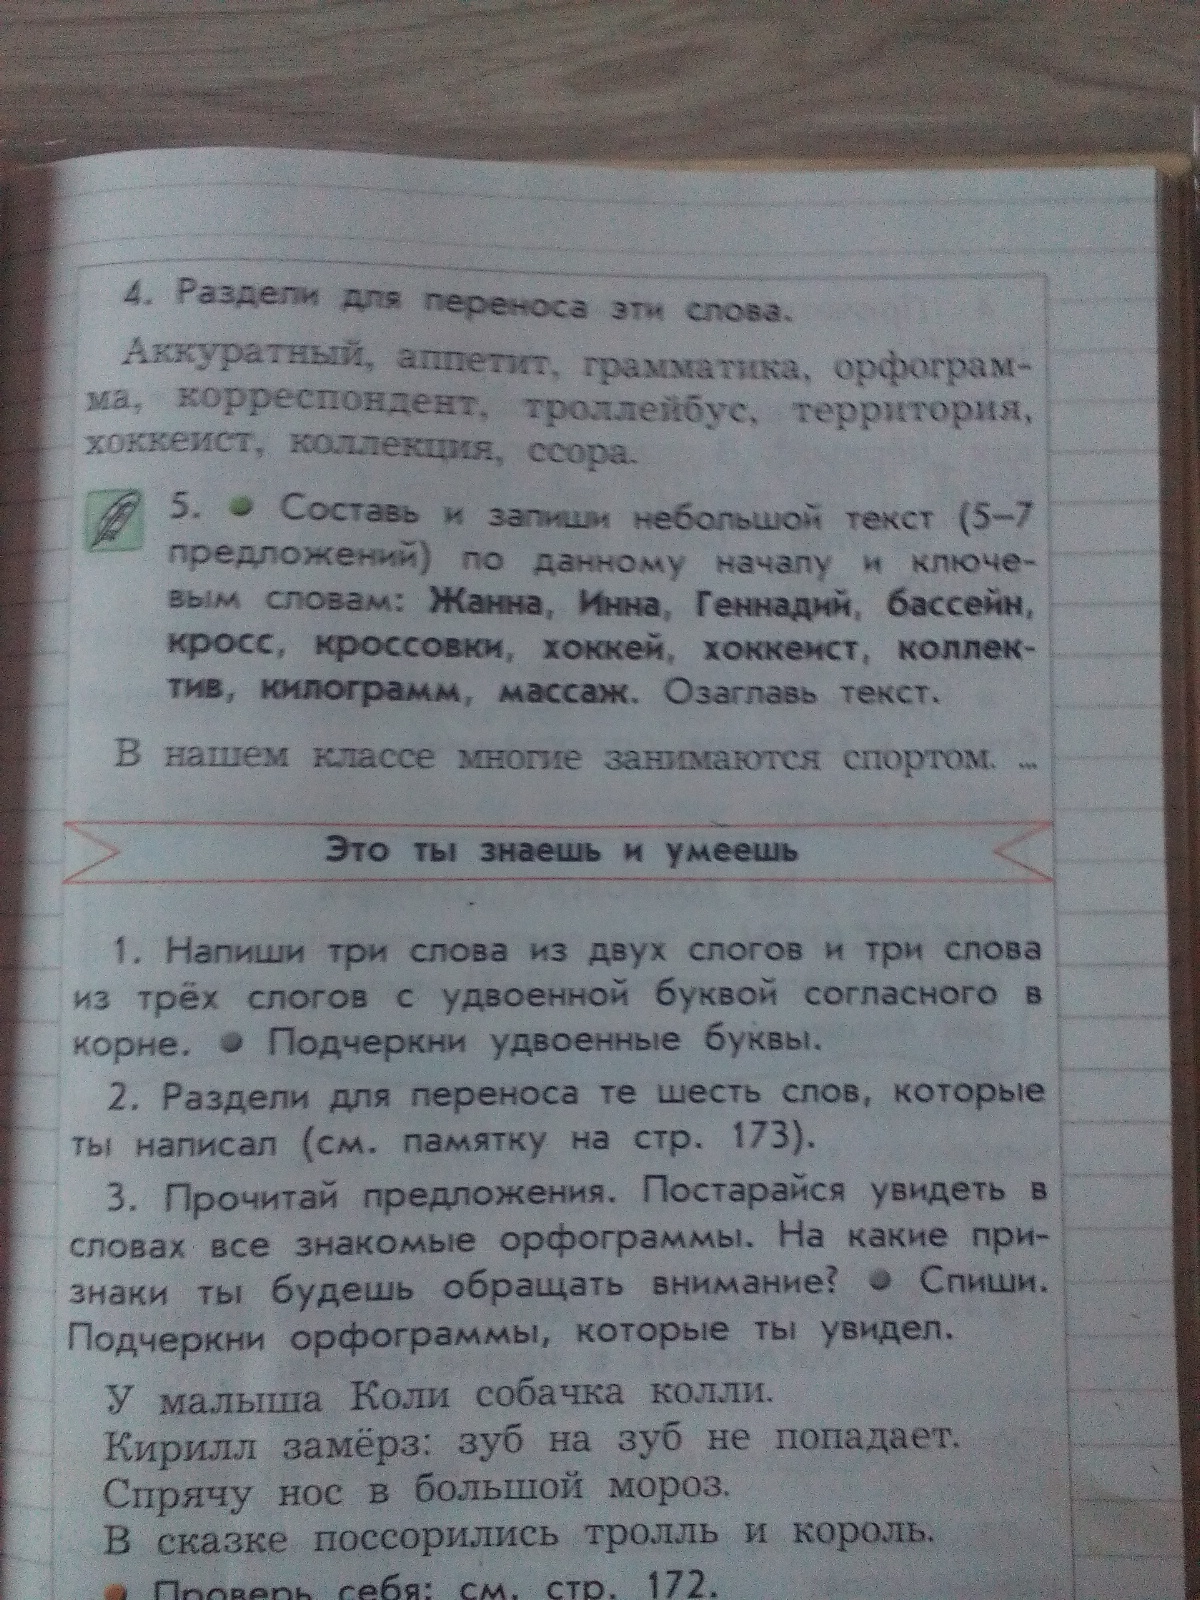 4. Раздели для переноса эти слова.
Аккуратный, аппетит, грамматика, орфограм-
ма, корреспондент, троллейбус, территория,
хоккеист, коллекция, ссора.
5. ● Составь и запиши небольшой текст (5–7
предложений) по данному началу и ключе-
вым словам: Жанна, Инна, Геннадий, бассейн,
кросс, кроссовки, хоккей, хоккеист, коллек-
тив, килограмм, массаж. Озаглавь текст.
В нашем классе многие занимаются спортом. ...
Это ты знаешь и умеешь
1. Напиши три слова из двух слогов и три слова
из трёх слогов с удвоенной буквой согласного в
корне. ● Подчеркни удвоенные буквы.
2. Раздели для переноса те шесть слов, которые
ты написал (см. памятку на стр. 173).
3. Прочитай предложения. Постарайся увидеть в
словах все знакомые орфограммы. На какие при-
знаки ты будешь обращать внимание? ● Спиши.
Подчеркни орфограммы, которые ты увидел.
У малыша Коли собачка колли.
Кирилл замёрз: зуб на зуб не попадает.
Спрячу нос в большой мороз.
В сказке поссорились тролль и король.
● Проверь себя: см. стр. 172.